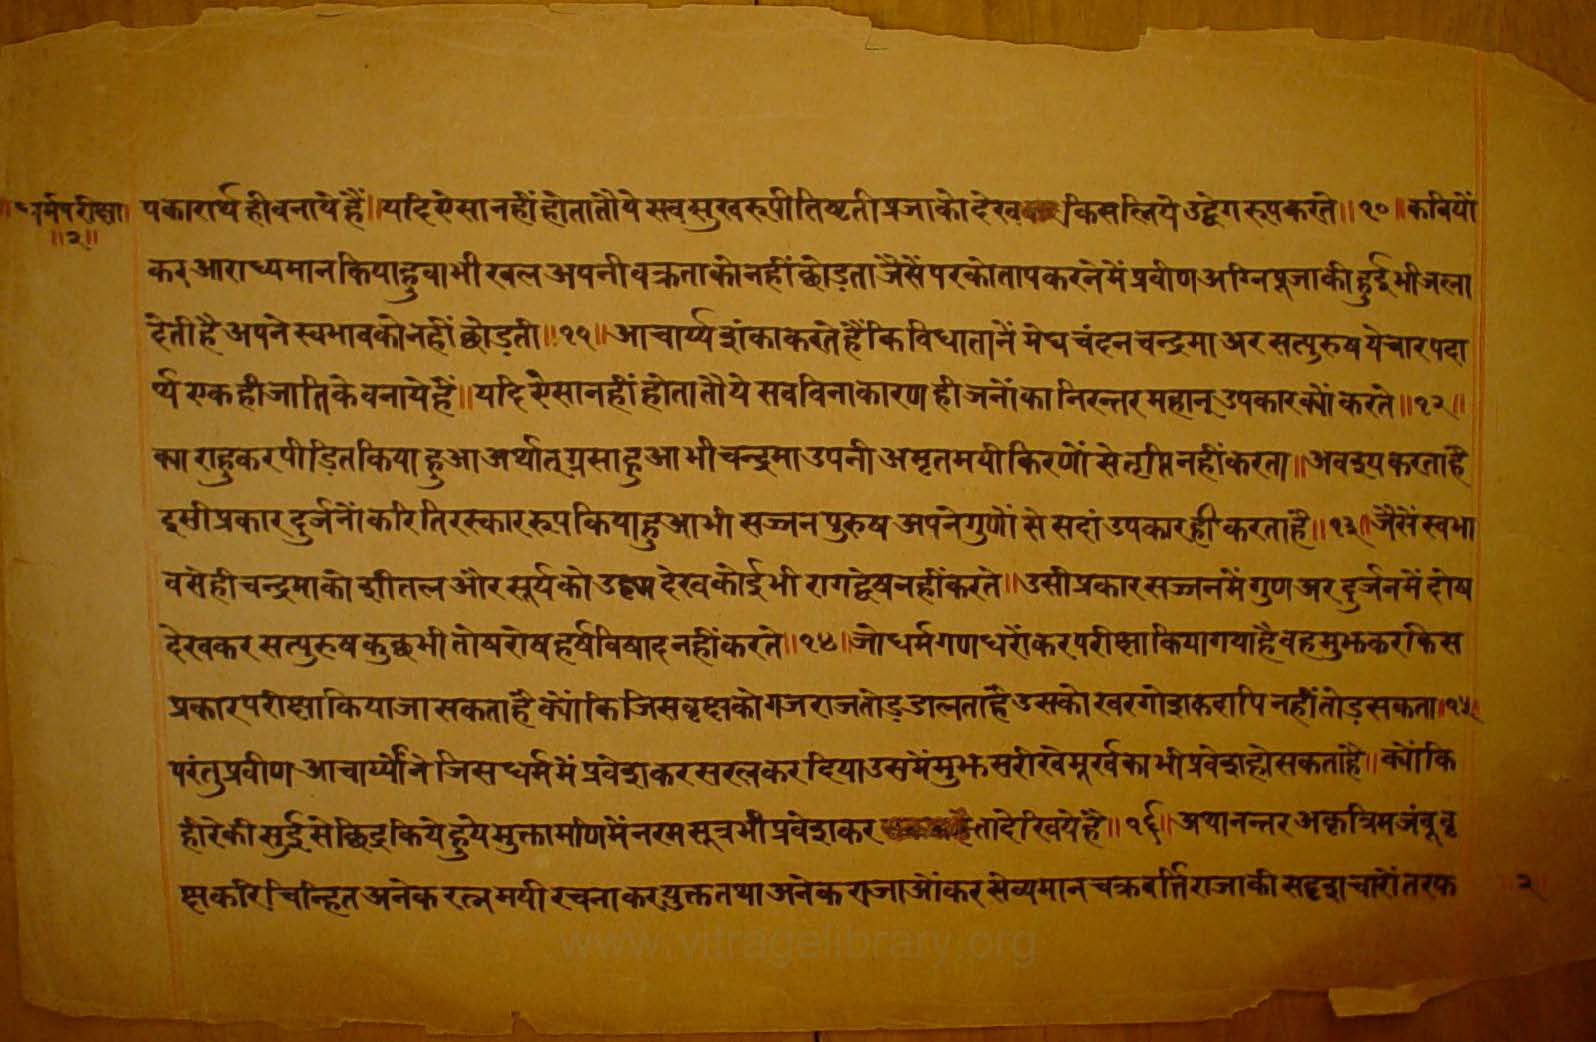 धर्मपरीक्षा
॥२॥
पकारार्थ ही बनाये हैं॥ यदि ऐसा नहीं होता तौ ये सब सुखरूपी तिष्टती प्रजाको देख किसलिये उद्वेगरूप करते॥१०॥ कवियों
कर आराध्यमान किया हुवा भी खल अपनी वक्रता को नहीं छोड़ता जैसें परको ताप करने में प्रवीण अग्नि पूजा की हुई भी जला
देती है अपने स्वभाव को नहीं छोड़ती॥११॥ आचार्य्य शंका करते हैं कि विधाता नें मेघ चंदन चन्द्रमा अर सत्पुरुष ये चार पदा
र्थ एक ही जाति के बनाये हैं॥ यदि ऐसा नहीं होता तौ ये सब विना कारण ही जनों का निरन्तर महान् उपकार क्यों करते॥१२॥
क्या राहु कर पीड़ित किया हुआ अर्थात् ग्रसा हुआ भी चन्द्रमा अपनी अमृतमयी किरणों से तृप्ति नहीं करता॥ अवश्य करता है
इसी प्रकार दुर्जनों करि तिरस्काररूप किया हुआ भी सज्जन पुरुष अपने गुणों से सदां उपकार ही करता है॥१३॥ जैसें स्वभा
व से ही चन्द्रमा को शीतल और सूर्य को देख कोई भी रागद्वेष नहीं करते॥ उसी प्रकार सज्जन में गुण अर दुर्जन में दोष
देखकर सत्पुरुष कुछ भी तोष रोष हर्ष विषाद नहीं करते॥१४॥ जो धर्म गणधरों कर परीक्षा किया गया है वह मुझ कर किस
प्रकार परीक्षा किया जा सकता है क्यों कि जिस वृक्ष को गजराज तोड़ डालता है उसको खरगोश कदापि नहीं तोड़ सकता॥१५॥
परंतु प्रवीण आचार्य्यों ने जिस धर्म में प्रवेश कर सरल कर दिया उसमें मुझ सरीखे मूर्ख का भी प्रवेश हो सकता है॥ क्यों कि
हीरे की सुई से छिद्र किये हुये मुक्तामणि में नरम सूत्र भी प्रवेश कर ता देखिये है॥१६॥ अथानन्तर अकृत्रिम जंबू वृ
क्ष करि चिन्हित अनेक रत्नमयी रचना कर युक्त तथा अनेक राजाओं कर सेव्यमान चक्रवर्त्ति राजा की सदृश चारों तरफ
२
www.vitragelibrary.org